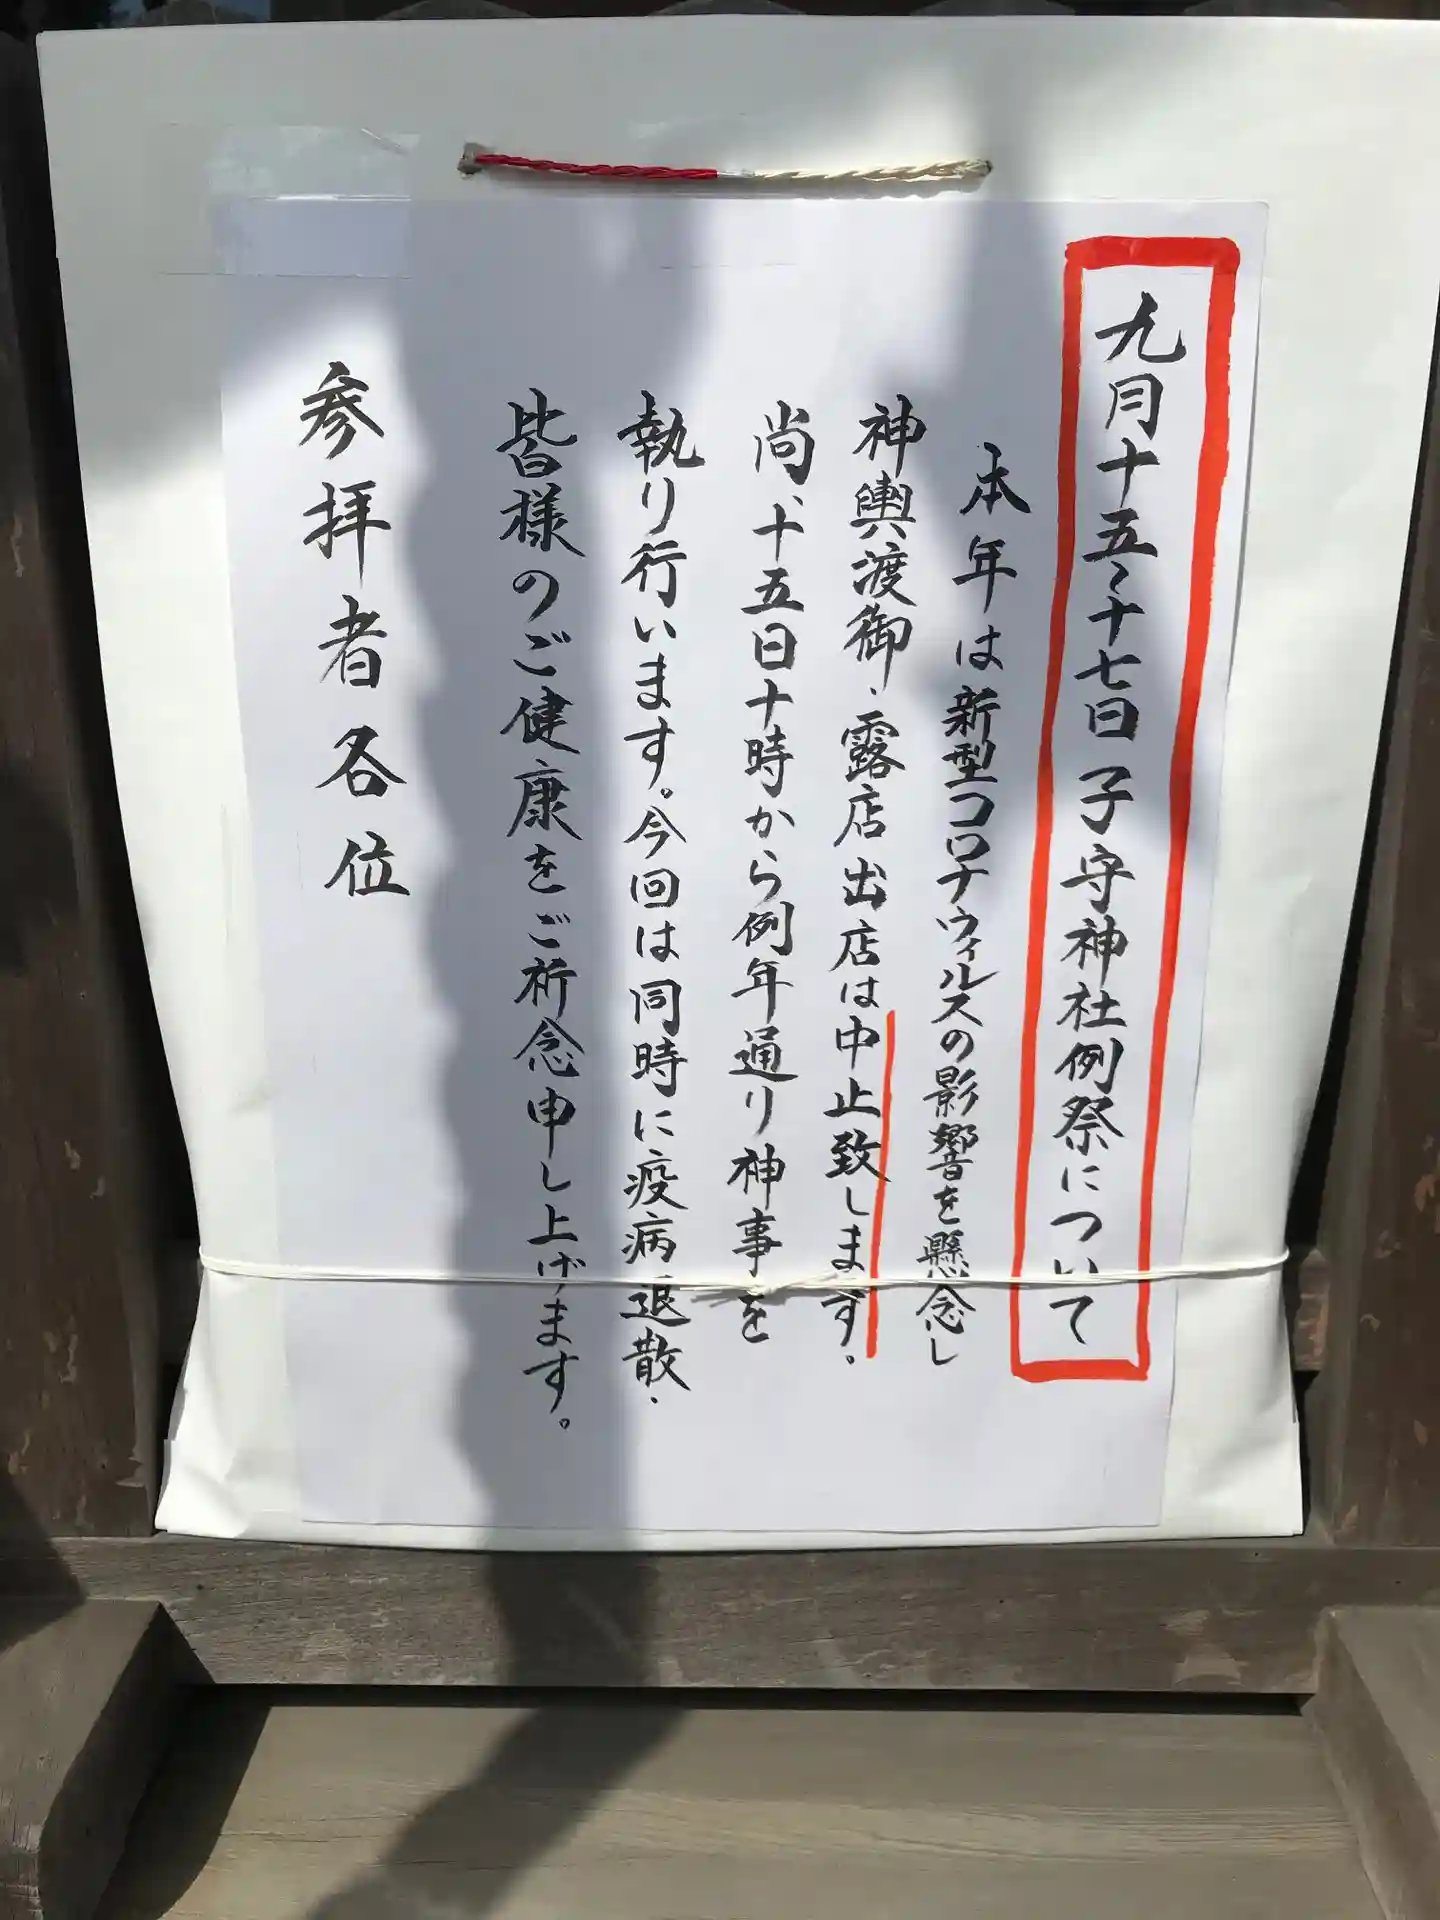 九月十五〜十七日 子守神社例祭について
本年は新型コロナウィルスの影響を懸念し
神輿渡御・露店出店は中止致します。
尚、十五日十時から例年通り神事を
執り行います。今回は同時に疫病退散・
皆様のご健康をご祈念申し上げます。
参拝者各位